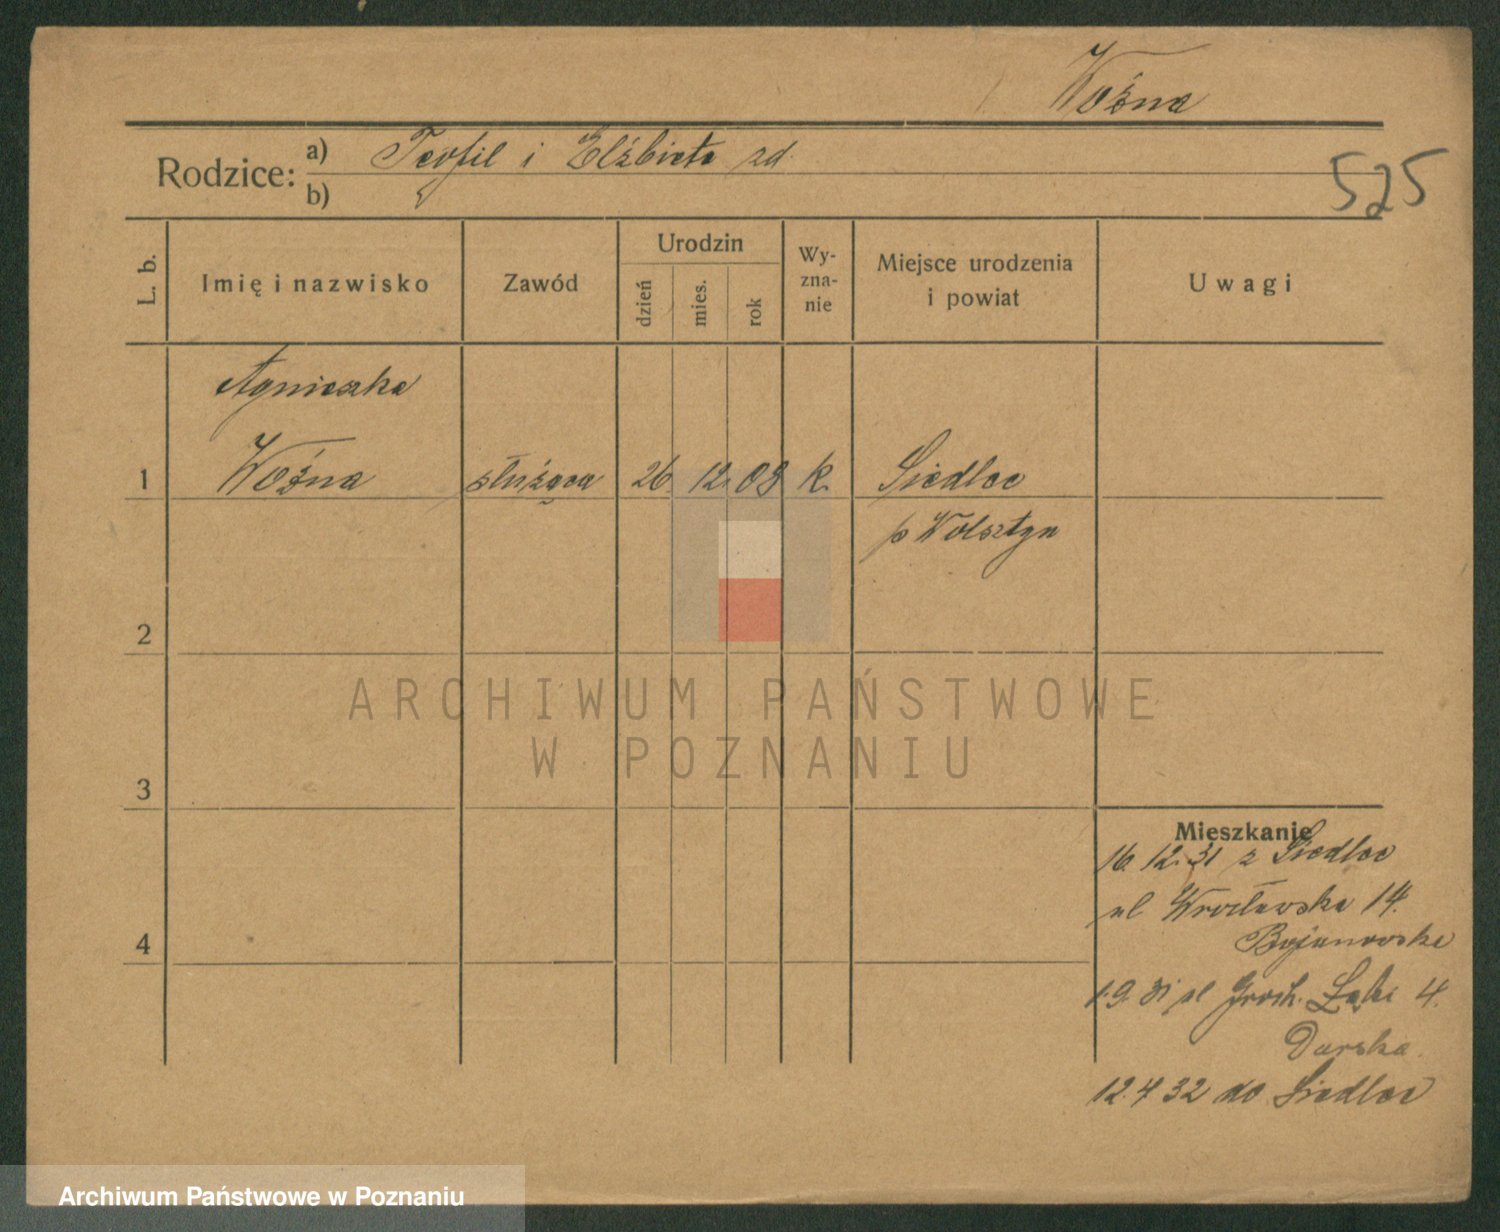 Woźna
Rodzice: a) Teofil i Elżbieta zd.
b)
525
L. b. Imię i nazwisko Zawód Urodzin dzień mies. rok Wy-zna-nie Miejsce urodzenia i powiat Uwagi
Agnieszka
1 Woźna służąca 26. 12. 08 k. Siedlec
p Wolsztyn
2
3
4
Mieszkanie
16 12. 31 z Siedlec
ul Wrocławska 14.
Bojanowska
1.9. 31 ul Groch. Łąki 4.
Darska.
12.4 32 do Siedlec
ARCHIWUM PAŃSTWOWE
W POZNANIU
Archiwum Państwowe w Poznaniu